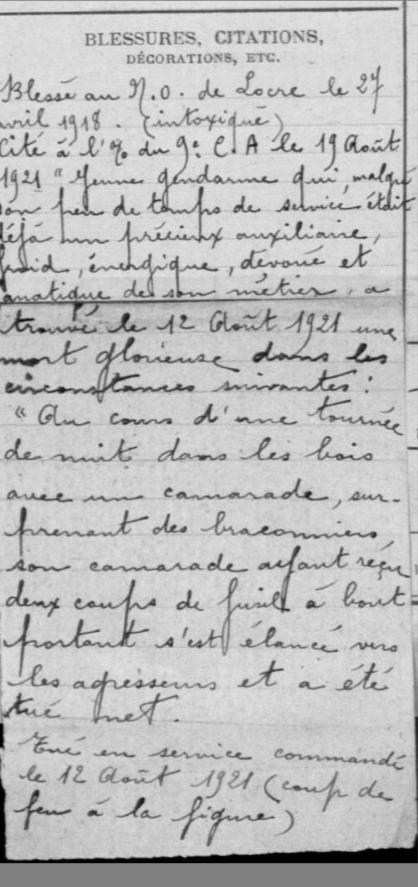 BLESSURES, CITATIONS,
DÉCORATIONS, ETC.
Blessé au N.O. de Locre le 27
avril 1918. (intoxiqué)
Cité à l'% du 9e C.A le 19 Août
1921 "Jeune gendarme qui, malgré
son peu de temps de service était
déjà un précieux auxiliaire,
froid, énergique, dévoué et
fanatique de son métier, a
trouvé le 12 Août 1921 une
mort glorieuse dans les
circonstances suivantes :
"Au cours d'une tournée
de nuit dans les bois
avec un camarade, sur-
prenant des braconniers,
son camarade ayant reçu
deux coups de fusil à bout
portant s'est élancé vers
les agresseurs et a été
tué net.
Tué en service commandé
le 12 Août 1921 (coup de
feu à la figure)